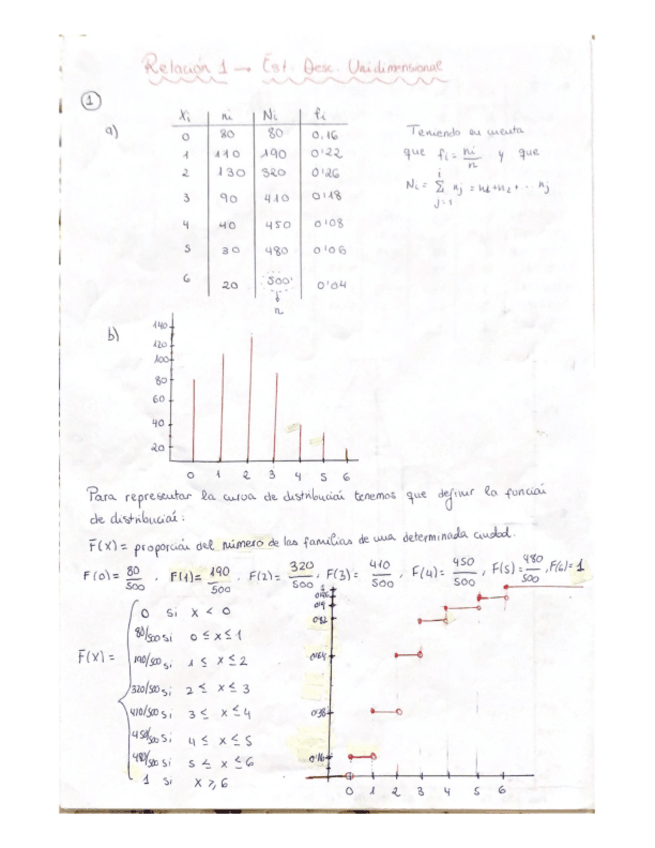 Relación 1 → Est. Desc. Unidimensional
1
a)
Xi ni Ni fi
0 80 80 0,16
1 110 190 0'22
2 130 320 0'26
3 90 410 0'18
4 40 450 0'08
5 30 480 0'06
6 20 500 0'04
n
Teniendo en cuenta
que fi = ni/n y que
Ni = Σ nj = n1+n2+... nj
i
j=1
b)
140
120
100
80
60
40
20
0 1 2 3 4 5 6
Para representar la curva de distribución tenemos que definir la función
de distribución:
F(X) = proporción del número de las familias de una determinada ciudad.
F(0)= 80/500 , F(1)= 190/500 , F(2)= 320/500 , F(3)= 410/500 , F(4)= 450/500 , F(5)= 480/500 , F(6)= 1
F(X) =
0 si X < 0
80/500 si 0 ≤ X ≤ 1
190/500 si 1 ≤ X ≤ 2
320/500 si 2 ≤ X ≤ 3
410/500 si 3 ≤ X ≤ 4
450/500 si 4 ≤ X ≤ 5
480/500 si 5 ≤ X ≤ 6
1 si X ≥ 6
1
0'96
0'9
0'82
0'64
0'38
0'16
0 1 2 3 4 5 6